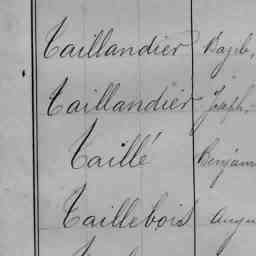 Taillandier Bazile,
Taillandier Joseph
Taillé Benjam
Taillebois Augu